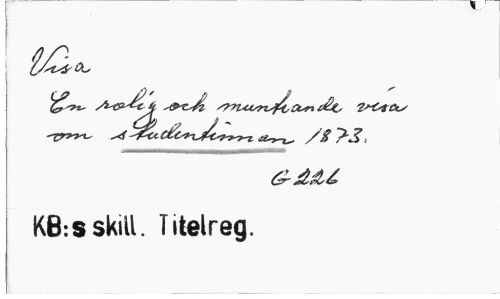 Visa
En rolig och muntrande visa
om studentinnan 1873.
G 226
KB:s skill. Titelreg.